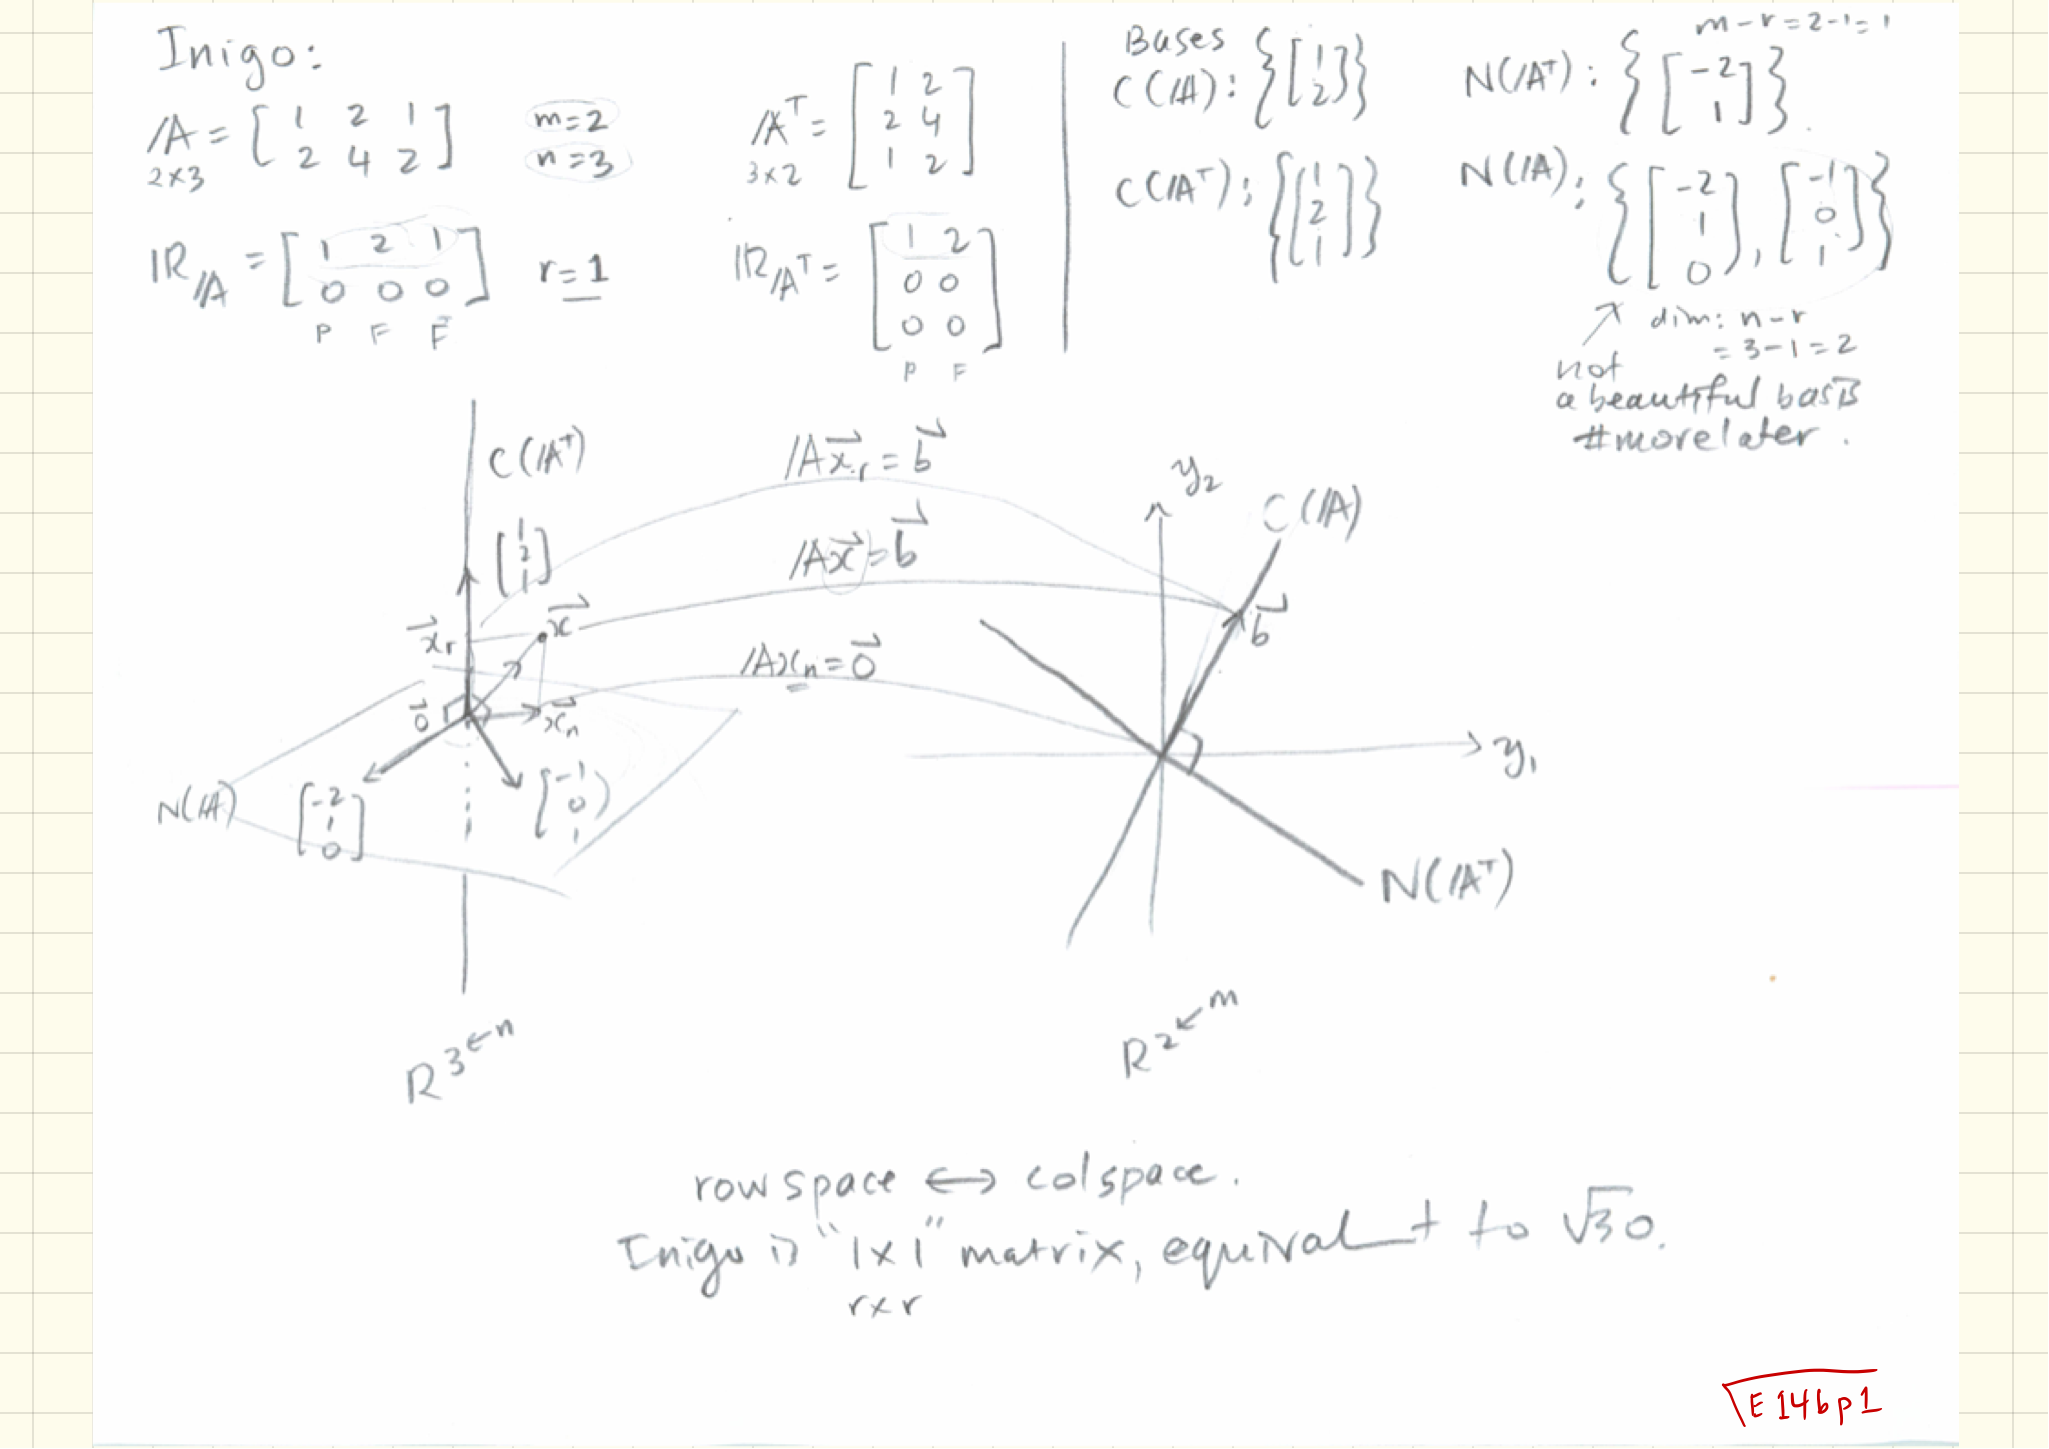 Inigo:
A = [ 1 2 1 ; 2 4 2 ]
2x3
m=2
n=3
Aᵀ = [ 1 2 ; 2 4 ; 1 2 ]
3x2
R_A = [ 1 2 1 ; 0 0 0 ]
P F F
r=1
R_Aᵀ = [ 1 2 ; 0 0 ; 0 0 ]
P F
Bases
C(A): { [ 1 ; 2 ] }
C(Aᵀ): { [ 1 ; 2 ; 1 ] }
m-r=2-1=1
N(Aᵀ): { [ -2 ; 1 ] }
N(A): { [ -2 ; 1 ; 0 ], [ -1 ; 0 ; 1 ] }
dim: n-r
= 3-1=2
not
a beautiful basis
#morelater.
C(Aᵀ)
[ 1 ; 2 ; 1 ]
x⃗_r
x⃗
0⃗
x⃗_n
N(A)
[ -2 ; 1 ; 0 ]
[ -1 ; 0 ; 1 ]
Ax⃗_r = b⃗
Ax⃗ = b⃗
Ax_n = 0⃗
y₂
C(A)
b⃗
y₁
N(Aᵀ)
R³ ← n
R² ← m
rowspace ↔ colspace.
Inigo is "1x1" matrix, equivalent to √30.
r x r
E 146 p1